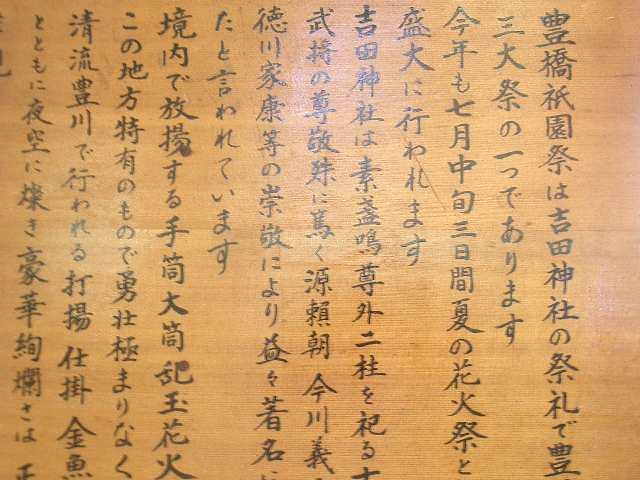 豊橋祇園祭は吉田神社の祭礼で豊
三大祭の一つであります
今年も七月中旬三日間夏の花火祭と
盛大に行われます
吉田神社は素盞鳴尊外二柱を祀る
武将の尊敬殊に篤く源頼朝今川義
徳川家康等の崇敬により益々著名
たと言われています
境内で放揚する手筒大筒乱玉花火
この地方特有のもので勇壮極まりなく
清流豊川で行われる打揚仕掛金魚
とともに夜空に燦き豪華絢爛さは